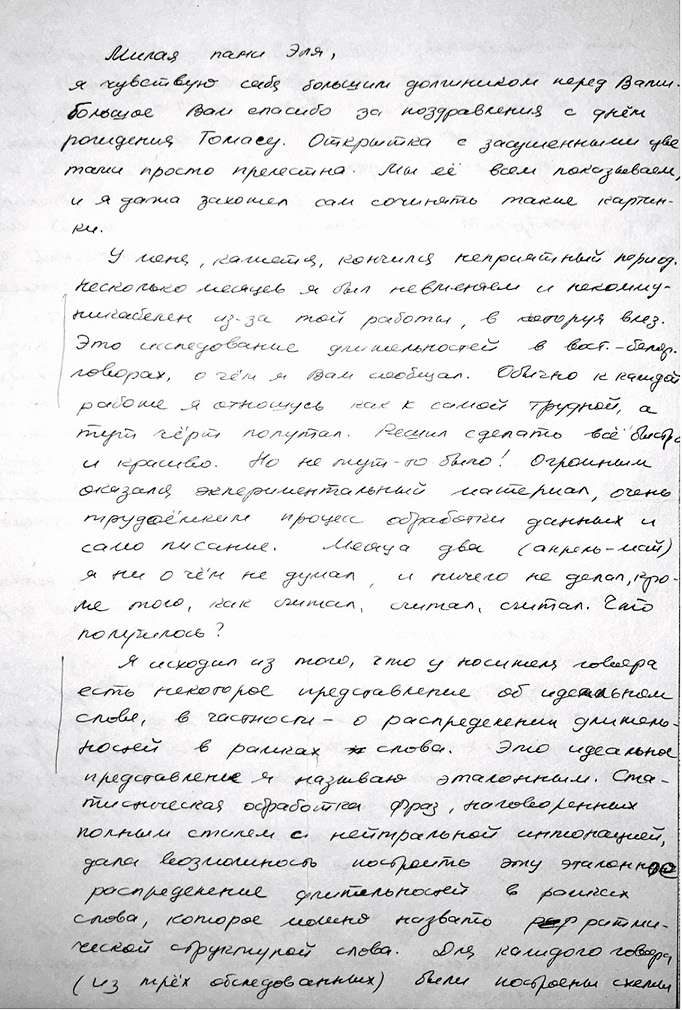 Милая пани Эля,
я чувствую себя большим должником перед Вами.
Большое Вам спасибо за поздравления с днём
рождения Томасу. Открытка с засушенными цве
тами просто прелестна. Мы её всем показываем,
и я даже захотел сам сочинять такие картин-
ки.
У меня, кажется, кончился неприятный период.
Несколько месяцев я был невменяем и некомму-
никабелен из-за той работы, в которую влез.
Это исследование длительностей в вост.-белор.
говорах, о чём я Вам сообщал. Обычно к каждой
работе я отношусь как к самой трудной, а
тут чёрт попутал. Решил сделать всё быстро
и красиво. Но не тут-то было! Огромным
оказался экпериментальный материал, очень
трудоёмким процесс обработки данных и
само писание. Месяца два (апрель-май)
я ни о чём не думал, и ничего не делал, кро-
ме того, как считал, считал, считал. Что
получилось?
Я исходил из того, что у носителя говора
есть некоторое представление об идеальном
слове, в частности – о распределении длитель-
ностей в рамках слова. Это идеальное
представление я называю эталонным. Ста-
тистическая обработка фраз, наговоренных
полным стилем с нейтральной интонацией,
дала возможность построить эту эталонное
распределение длительностей в рамках
слова, которое можно назвать ритми-
ческой структурой слова. Для каждого говора
(из трёх обследованных) были построены схемы